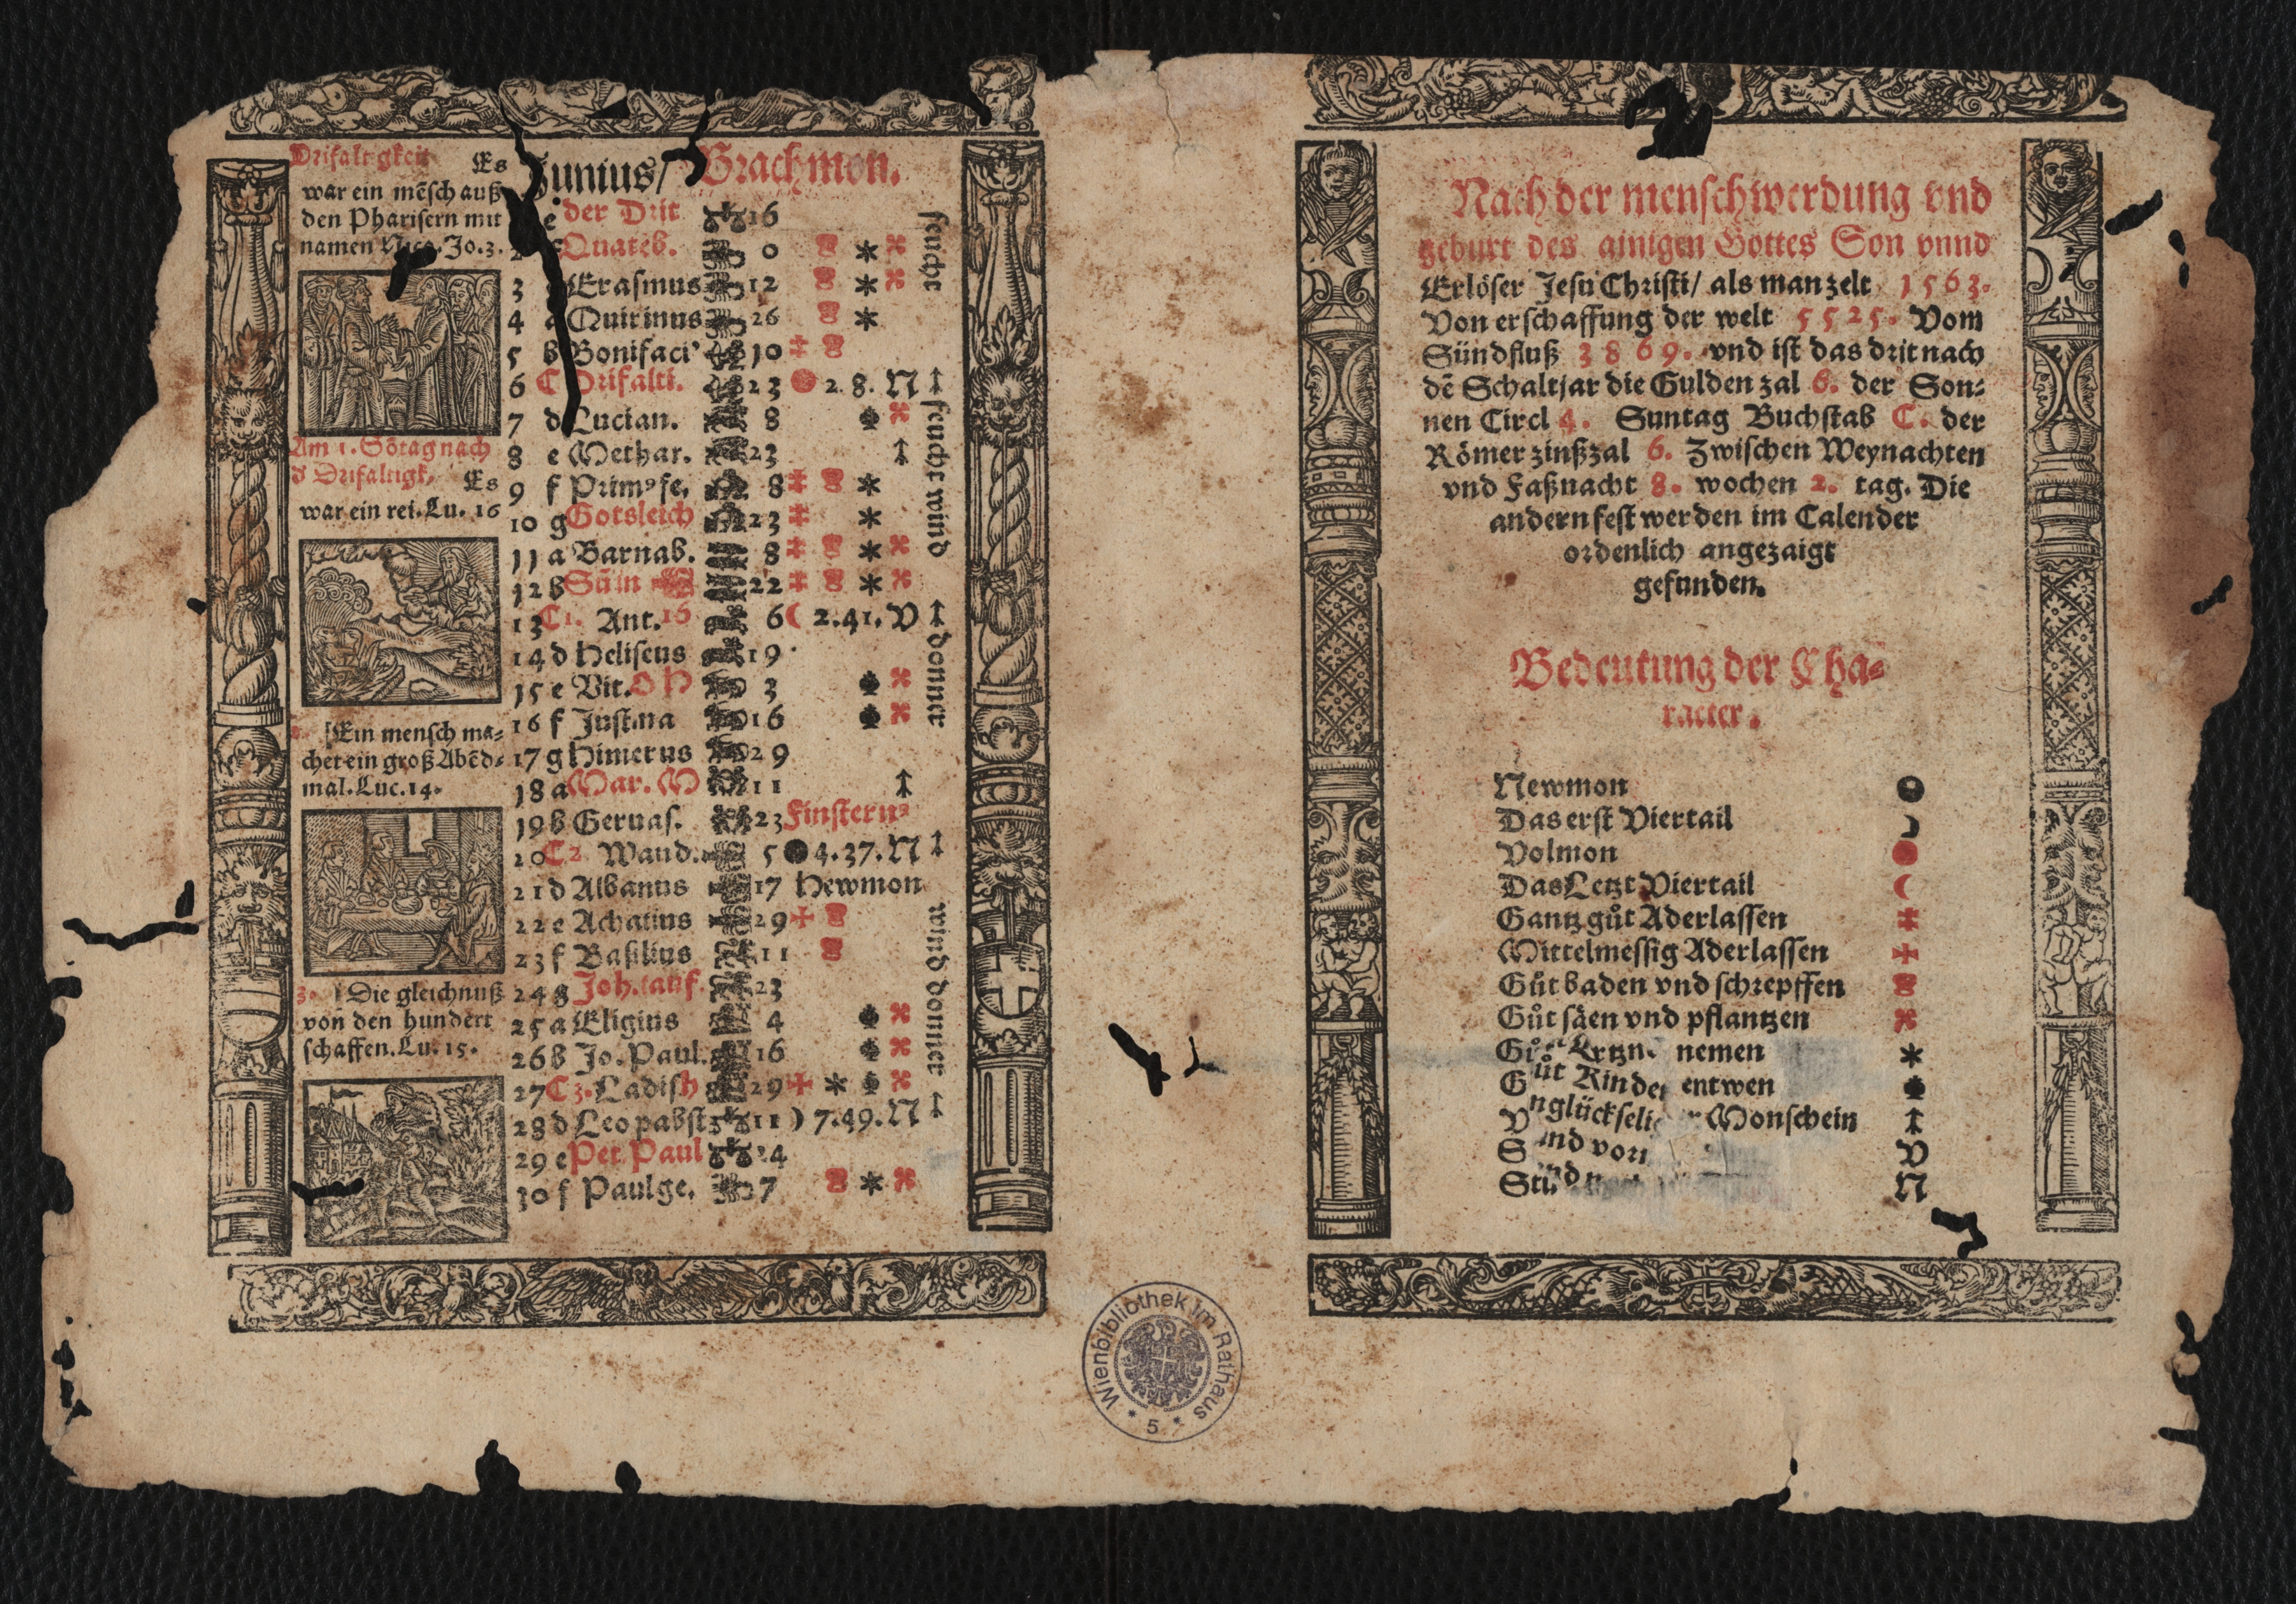 Drifaltigkeit Es
war ein mēsch auß
den Pharisern mit
namen Nico. Jo. 3.
Am 1. Sōtag nach
d Drifaltigk. Es
war ein rei. Lu. 16
[Ein mensch ma=
chet ein groß Abēd=
mal. Luc. 14.
3. [Die gleichnuß
von den hundert
schaffen. Lu. 15.
Junius/ Brachmon.
e der Drit 16
2 f Quateb. 0
3 Erasmus 12
4 a Quirinus 26
5 b Bonifaci' 10
6 C Drifalti. 23 2.8. N
7 d Lucian. 8
8 e Methar. 23
9 f Prim' fe. 8
10 g Gotsleich 23
11 a Barnab. 8
12 b Sūin 22
13 C 1. Ant. 16 6 ☾ 2.41. V
14 d Heliseus 19
15 e Vit. 3
16 f Justina 16
17 g Himerus 29
18 a Mar. M 11
19 b Geruas. 23 Finstern'
20 C 2 Waud. 5 ● 4.37. N
21 d Albanus 17 Newmon
22 e Achatius 29 ✠
23 f Basilius 11
24 g Joh. tauf. 23
25 a Eligius 4
26 b Jo. Paul. 16
27 C 3. Ladish 29 ✠ *
28 d Leo pabst 11 ) 7.49. N
29 e Pet. Paul 24
30 f Paulge. 7 *
feucht
feucht wind
donner
wind donner
Nach der menschwerdung vnd
geburt des ainigen Gottes Son vnnd
Erlöser Jesu Christi/ als man zelt 1563.
Von erschaffung der welt 5525. Vom
Sündfluß 3869. vnd ist das drit nach
dē Schaltjar die Gulden zal 6. der Son=
nen Circl 4. Suntag Buchstab C. der
Römer zinßzal 6. Zwischen Weynachten
vnd Faßnacht 8. wochen 2. tag. Die
andern fest werden im Calender
ordenlich angezaigt
gefunden.
Bedeutung der Cha=
racter.
Newmon ●
Das erst Viertail
Volmon
Das Letzt Viertail ☾
Gantz gůt Aderlassen
Mittelmessig Aderlassen ✠
Gůt baden vnd schrepffen
Gůt säen vnd pflantzen
nemen *
Gůt Kinder entwen
Vnglückseliger Monschein
vor V
N
Wienbibliothek im Rathaus
* 5 *